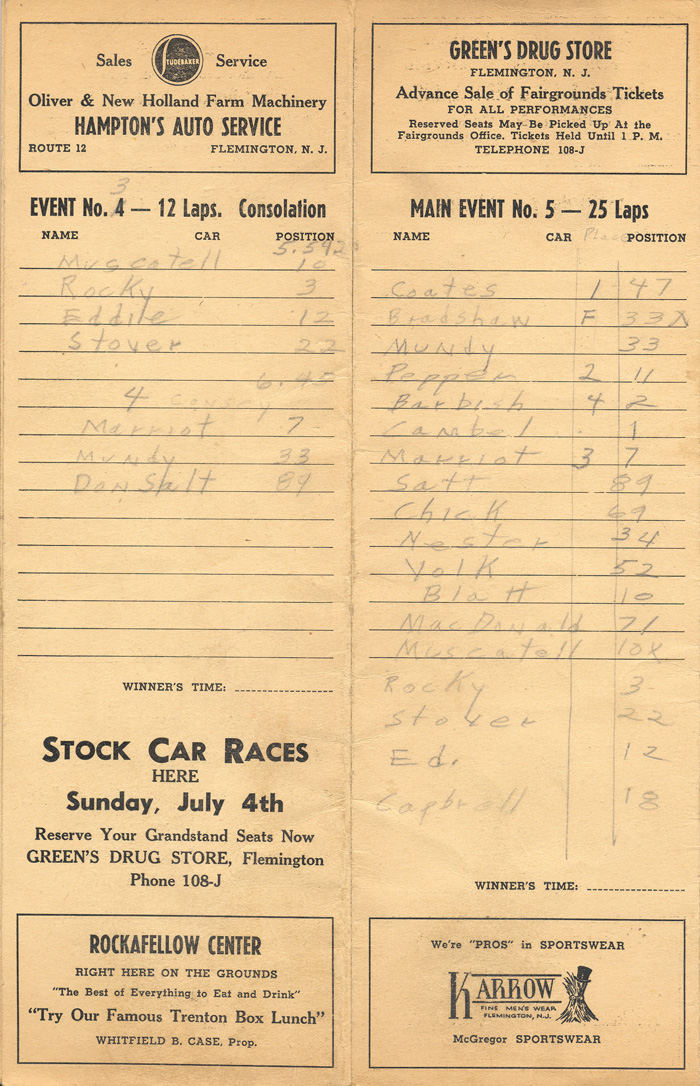 Sales STUDEBAKER Service
Oliver & New Holland Farm Machinery
HAMPTON'S AUTO SERVICE
ROUTE 12 FLEMINGTON, N. J.
3
EVENT No. 4 — 12 Laps. Consolation
NAME CAR POSITION
5.592
Muscatell 10
Rocky 3
Eddie 12
Stover 22
6.45
4 Consey
Marriot 7
Mundy 33
Don Salt 89
WINNER'S TIME:
STOCK CAR RACES
HERE
Sunday, July 4th
Reserve Your Grandstand Seats Now
GREEN'S DRUG STORE, Flemington
Phone 108-J
ROCKAFELLOW CENTER
RIGHT HERE ON THE GROUNDS
"The Best of Everything to Eat and Drink"
"Try Our Famous Trenton Box Lunch"
WHITFIELD B. CASE, Prop.
GREEN'S DRUG STORE
FLEMINGTON, N. J.
Advance Sale of Fairgrounds Tickets
FOR ALL PERFORMANCES
Reserved Seats May Be Picked Up At the
Fairgrounds Office. Tickets Held Until 1 P. M.
TELEPHONE 108-J
MAIN EVENT No. 5 — 25 Laps
NAME CAR Place POSITION
Coates 1 47
Bradshaw F 33X
Mundy 33
Pepper 2 11
Barbish 4 2
Cambel 1
Marriot 3 7
Satt 89
Chick 69
Nester 34
Volk 52
Blatt 10
MacDonald 71
Muscatell 10X
Rocky 3
Stover 22
Ed. 12
18
WINNER'S TIME:
We're "PROS" in SPORTSWEAR
KARROW
FINE MEN'S WEAR
FLEMINGTON, N.J.
McGregor SPORTSWEAR